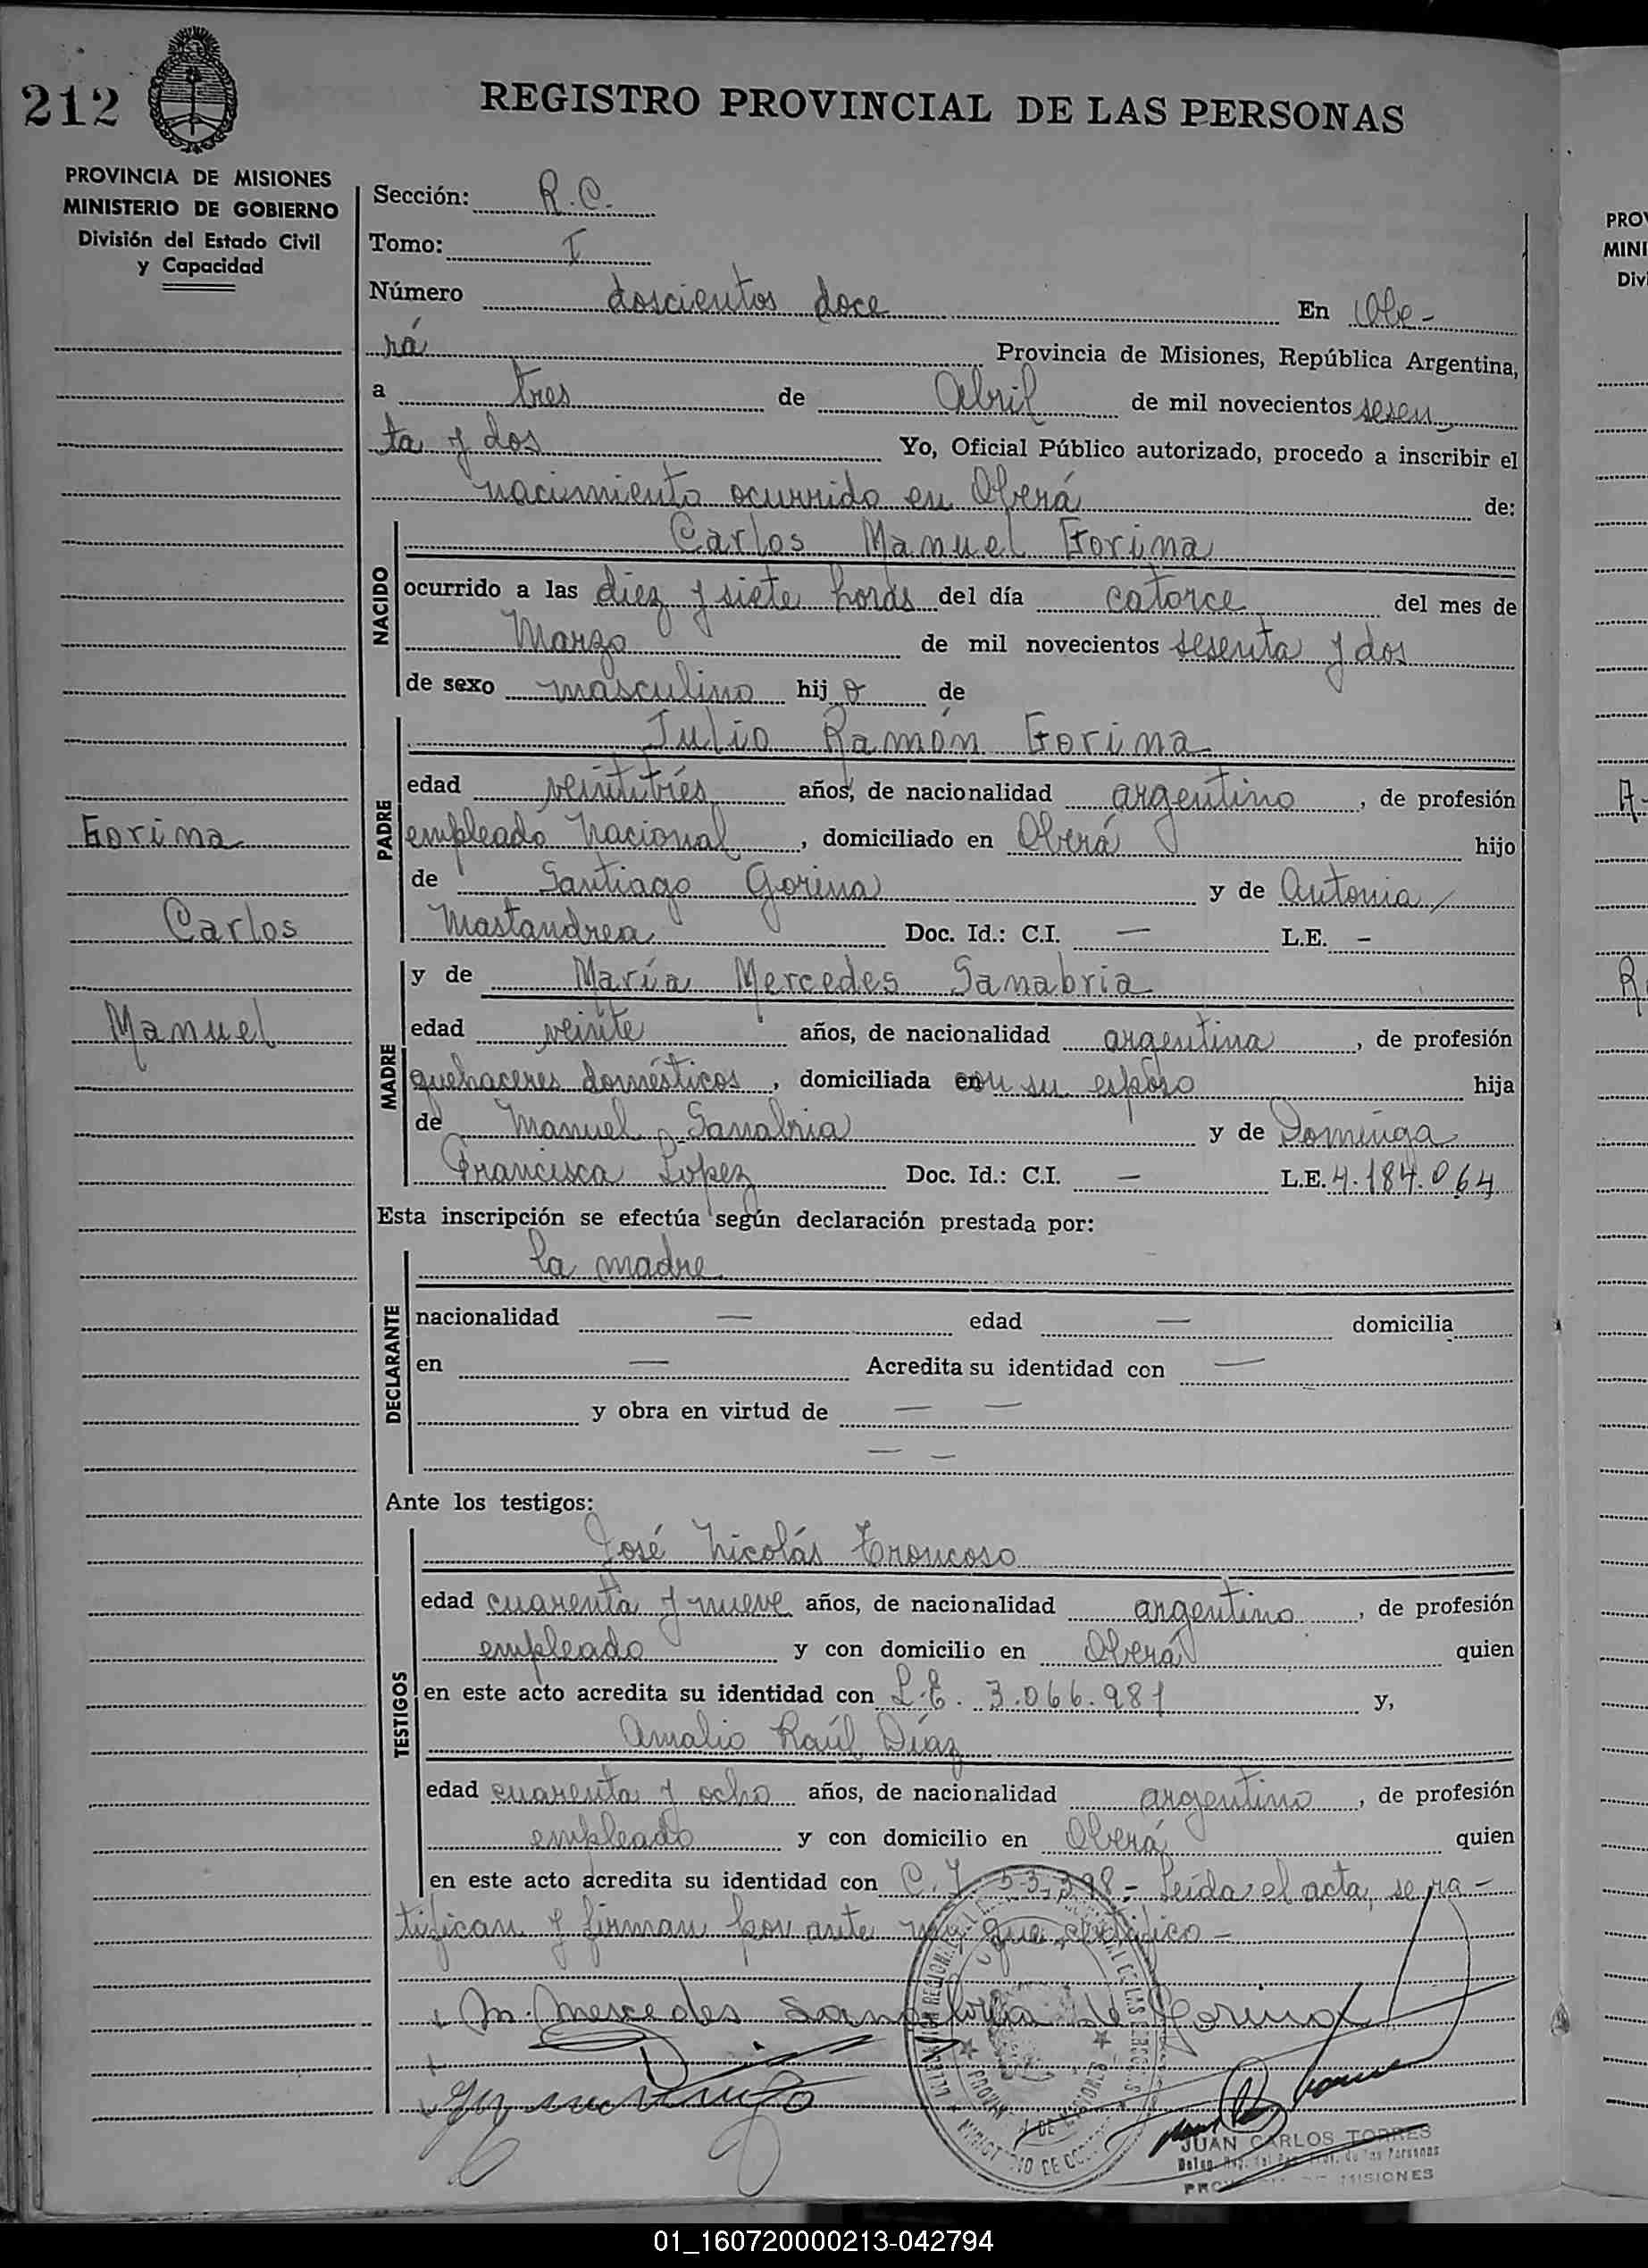 212
REGISTRO PROVINCIAL DE LAS PERSONAS
PROVINCIA DE MISIONES
MINISTERIO DE GOBIERNO
División del Estado Civil
y Capacidad
Sección: R.C.
Tomo: I
Número doscientos doce En Obe-
rá Provincia de Misiones, República Argentina,
a tres de Abril de mil novecientos sesen
ta y dos Yo, Oficial Público autorizado, procedo a inscribir el
nacimiento ocurrido en Oberá de:
NACIDO
Carlos Manuel Gorina
ocurrido a las diez y siete horas del día catorce del mes de
Marzo de mil novecientos sesenta y dos
de sexo masculino hijo de
PADRE
Julio Ramón Gorina
edad veintitrés años, de nacionalidad argentino, de profesión
empleado nacional, domiciliado en Oberá hijo
de Santiago Gorina y de Antonia
Mastandrea Doc. Id.: C.I. — L.E. -
Gorina
Carlos
Manuel
MADRE
y de María Mercedes Sanabria
edad veinte años, de nacionalidad argentina, de profesión
quehaceres domésticos, domiciliada con su esposo hija
de Manuel Sanabria y de Dominga
Francisca Lopez Doc. Id.: C.I. — L.E. 4.184.064
Esta inscripción se efectúa según declaración prestada por:
DECLARANTE
la madre
nacionalidad — edad — domicilia
en — Acredita su identidad con —
y obra en virtud de — —
— —
Ante los testigos:
TESTIGOS
José Nicolás Troncoso
edad cuarenta y nueve años, de nacionalidad argentino, de profesión
empleado y con domicilio en Oberá quien
en este acto acredita su identidad con L.E. 3.066.981 y,
Amalio Raúl Díaz
edad cuarenta y ocho años, de nacionalidad argentino, de profesión
empleado y con domicilio en Oberá quien
en este acto acredita su identidad con C.I. 53.398 - Leída el acta, se ra-
tifican y firman por ante mí que certifico -
M. Mercedes Sanabria de Gorina
JUAN CARLOS TORRES
MISIONES
PROV
MINI
Div
01_160720000213-042794